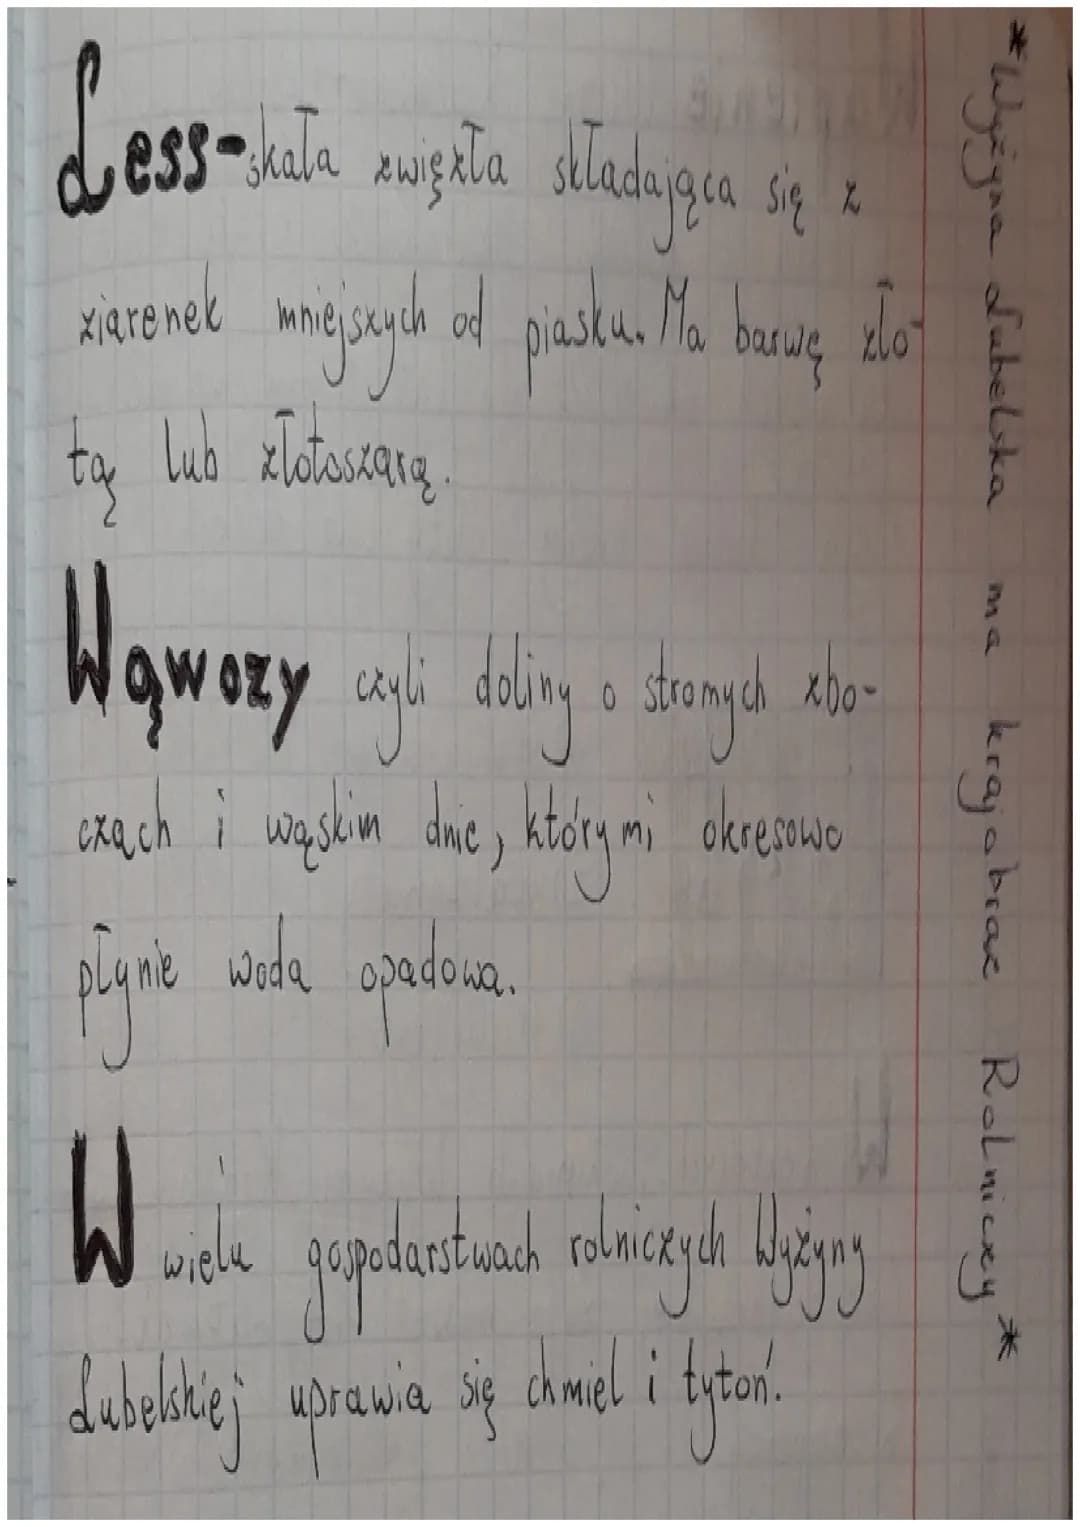 Less-skała zwięzła składająca się z
ziarenek mniejszych od piasku. Ma barwę zło-
tą lub złotoszarą.
Wąwozy czyli doliny o stromych zbo-
czach i wąskim dnie, którymi okresowo
płynie woda opadowa.
W wielu gospodarstwach rolniczych Wyżyny
Lubelskiej uprawia się chmiel i tytoń.
*Wyżyna Lubelska ma krajobraz Rolniczy*